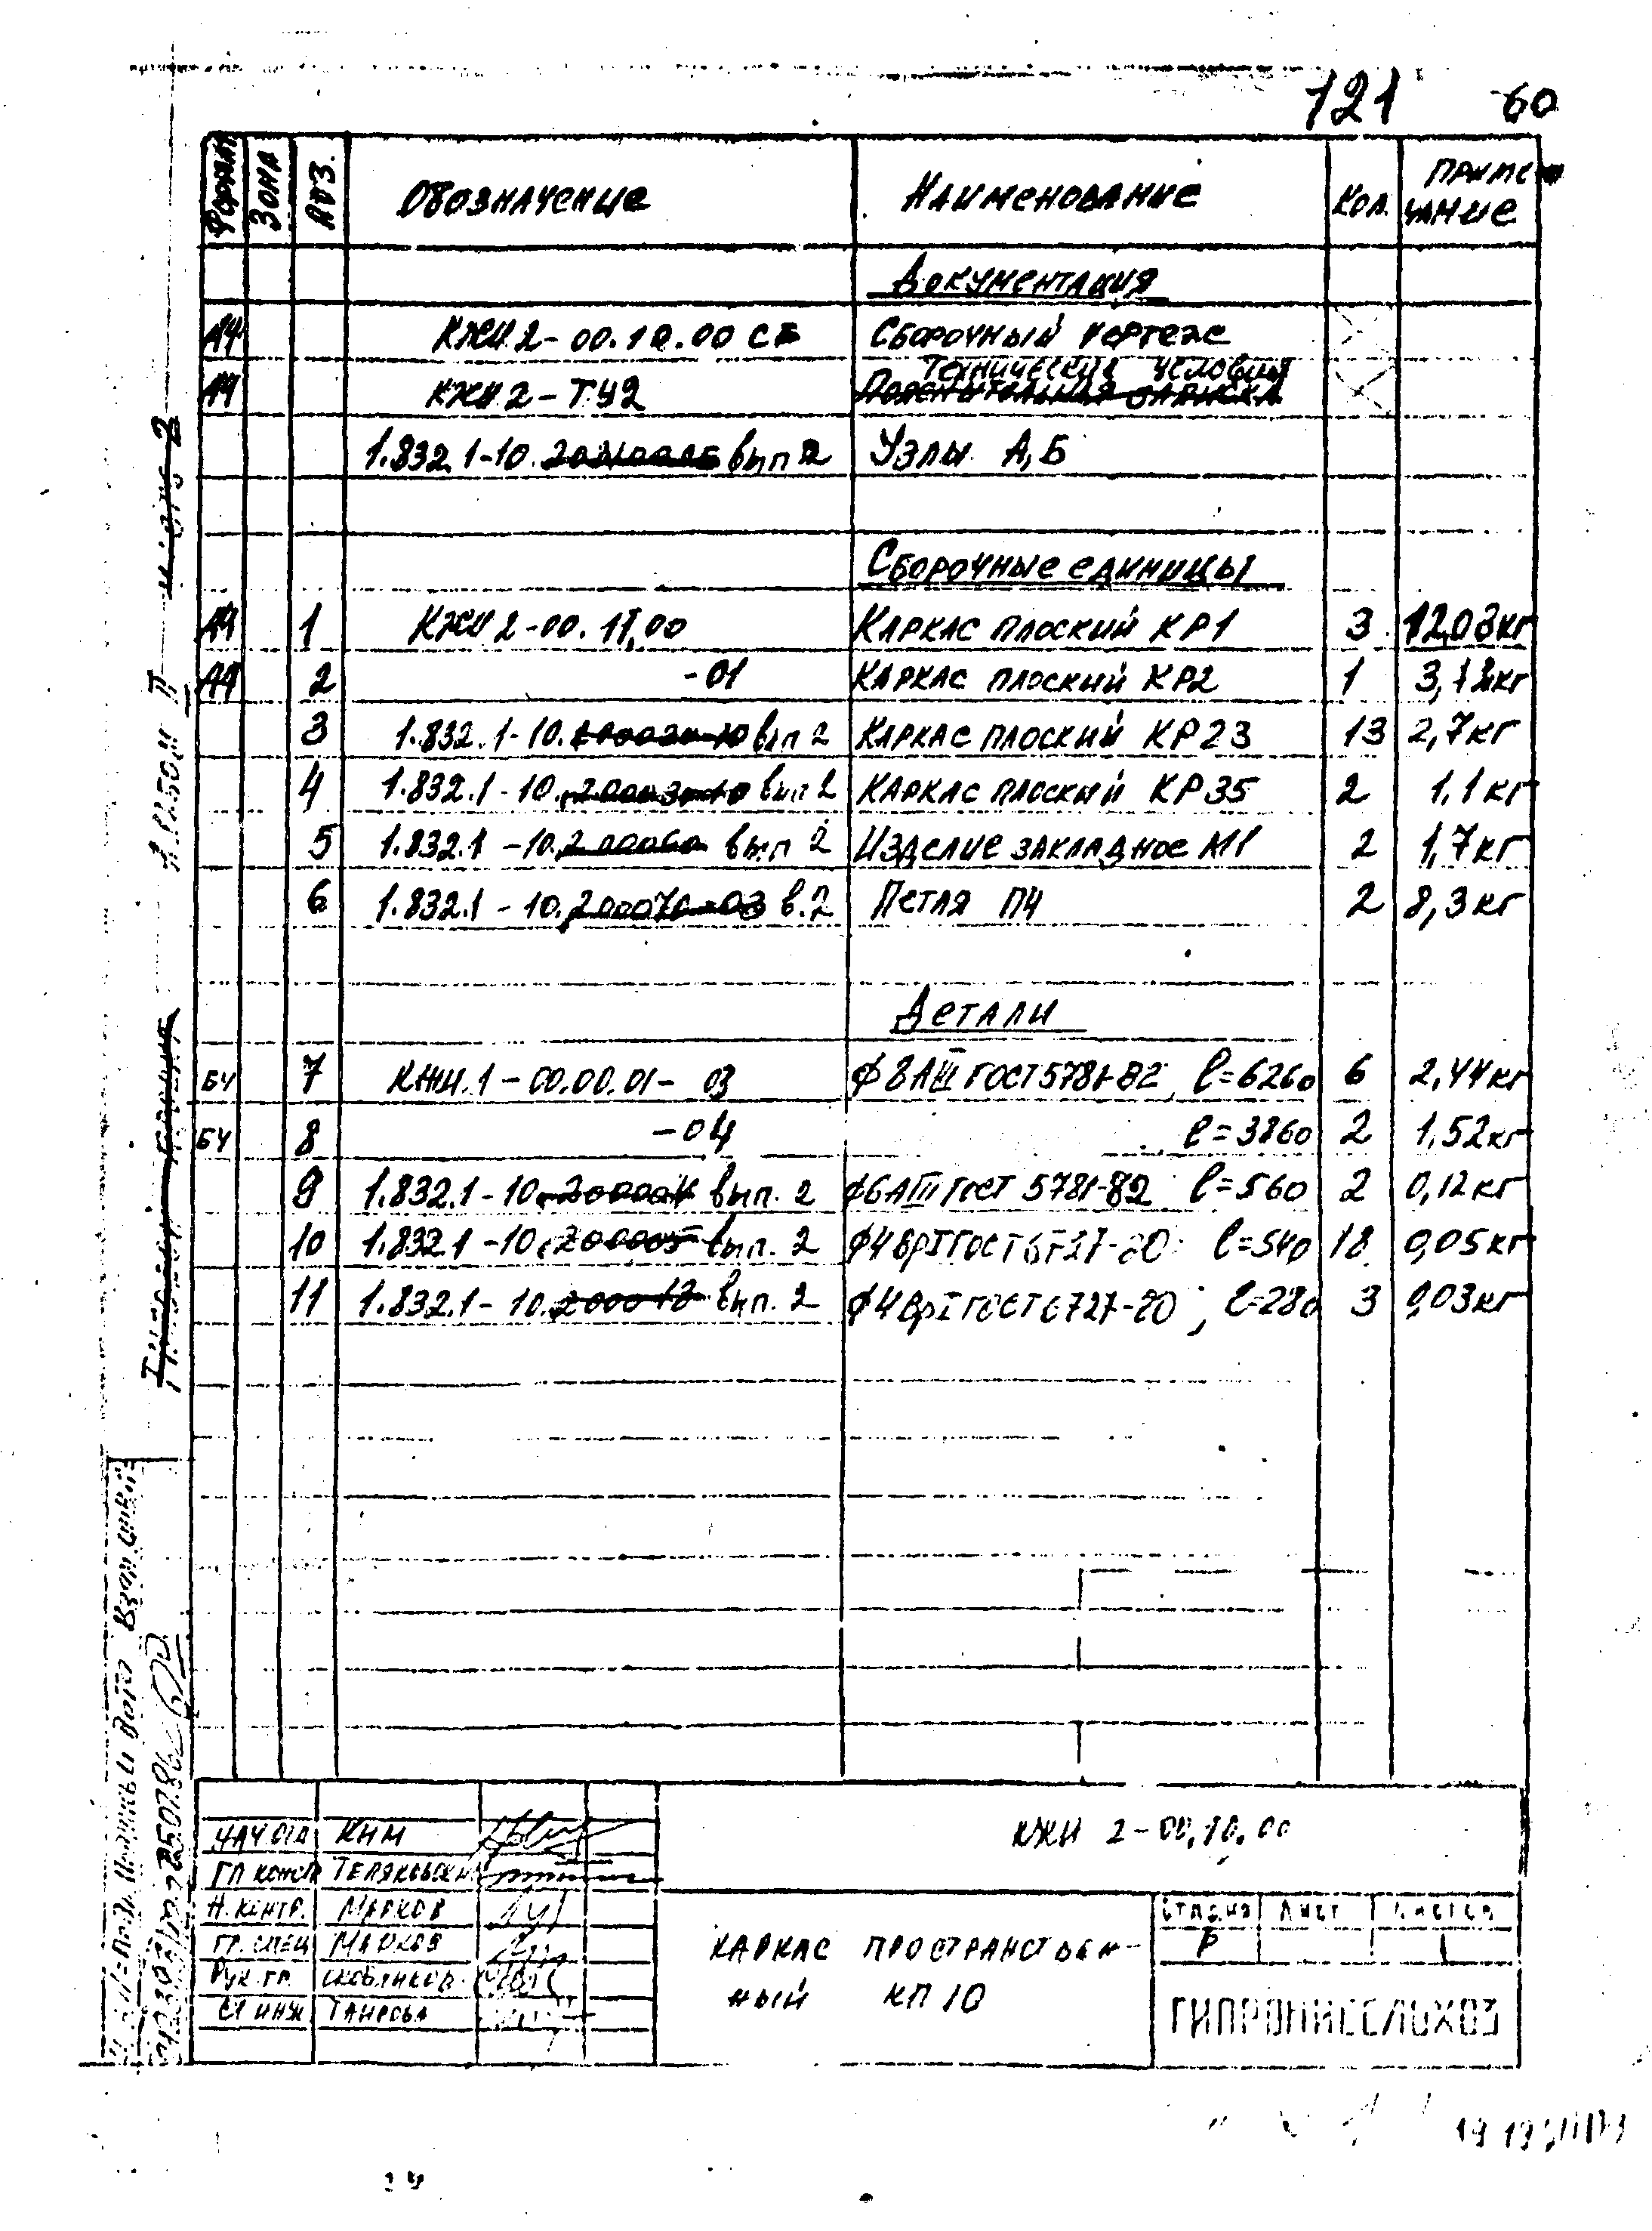 121 60
Формат Зона Поз. Обозначение Наименование Кол. Примечание
Документация
А4 КЖИ.2-00.10.00 СБ Сборочный чертеж
А4 КЖИ.2-ТУ2 Технические условия
Пояснительная записка
1.832.1-10. вып 2 Узлы А,Б
Сборочные единицы
А4 1 КЖИ 2-00.11.00 Каркас плоский КР1 3 12,03кг
А4 2 -01 Каркас плоский КР2 1 кг
3 1.832.1-10. вып 2 Каркас плоский КР23 13 2,7кг
4 1.832.1-10. вып 2 Каркас плоский КР35 2 1,1кг
5 1.832.1-10.200060 вып 2 Изделие закладное М11 2 1,7кг
6 1.832.1-10.200070-03 в.2 Петля П4 2 8,3кг
Детали
БЧ 7 КЖИ.1-00.00.01-03 ф8АIII ГОСТ 5781-82 l=6260 6 2,44кг
БЧ 8 -04 l=3860 2 1,52кг
9 1.832.1-10.200004 вып. 2 ф6АIII ГОСТ 5781-82 l=560 2 0,12кг
10 1.832.1-10.200005 вып. 2 ф4ВрI ГОСТ 6727-80 l=540 18 0,05кг
11 1.832.1-10.200018 вып. 2 ф4ВрI ГОСТ 6727-80, l=280 3 0,03кг
КЖИ 2-00.10.00
Нач.отд Ким
Гл конст Теляковский
Н.контр. Марков
Гл.спец Марков
Рук.гр. Скобликов
Ст инж Таирова
Каркас пространствен-
ный КП 10
Стадия Лист Листов
Р 1
ГИПРОНИСЕЛЬХОЗ